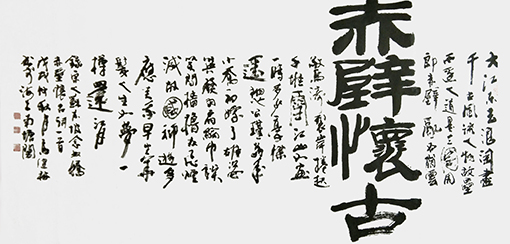 大江東去浪淘盡
千古風流人物故壘
西邊人道是三國周
郎赤壁亂石崩雲
赤壁懷古
驚濤裂岸捲起
千堆雪江山如畫
一時多少豪傑
遙想公瑾當年
小喬初嫁了雄姿
英發羽扇綸巾談
笑間檣櫓灰飛煙
滅故國神遊多
應笑我早生華
髮人生如夢一
樽還酹月
錄宋人蘇東坡念奴嬌
赤壁懷古詞一首
戊戌仲秋月